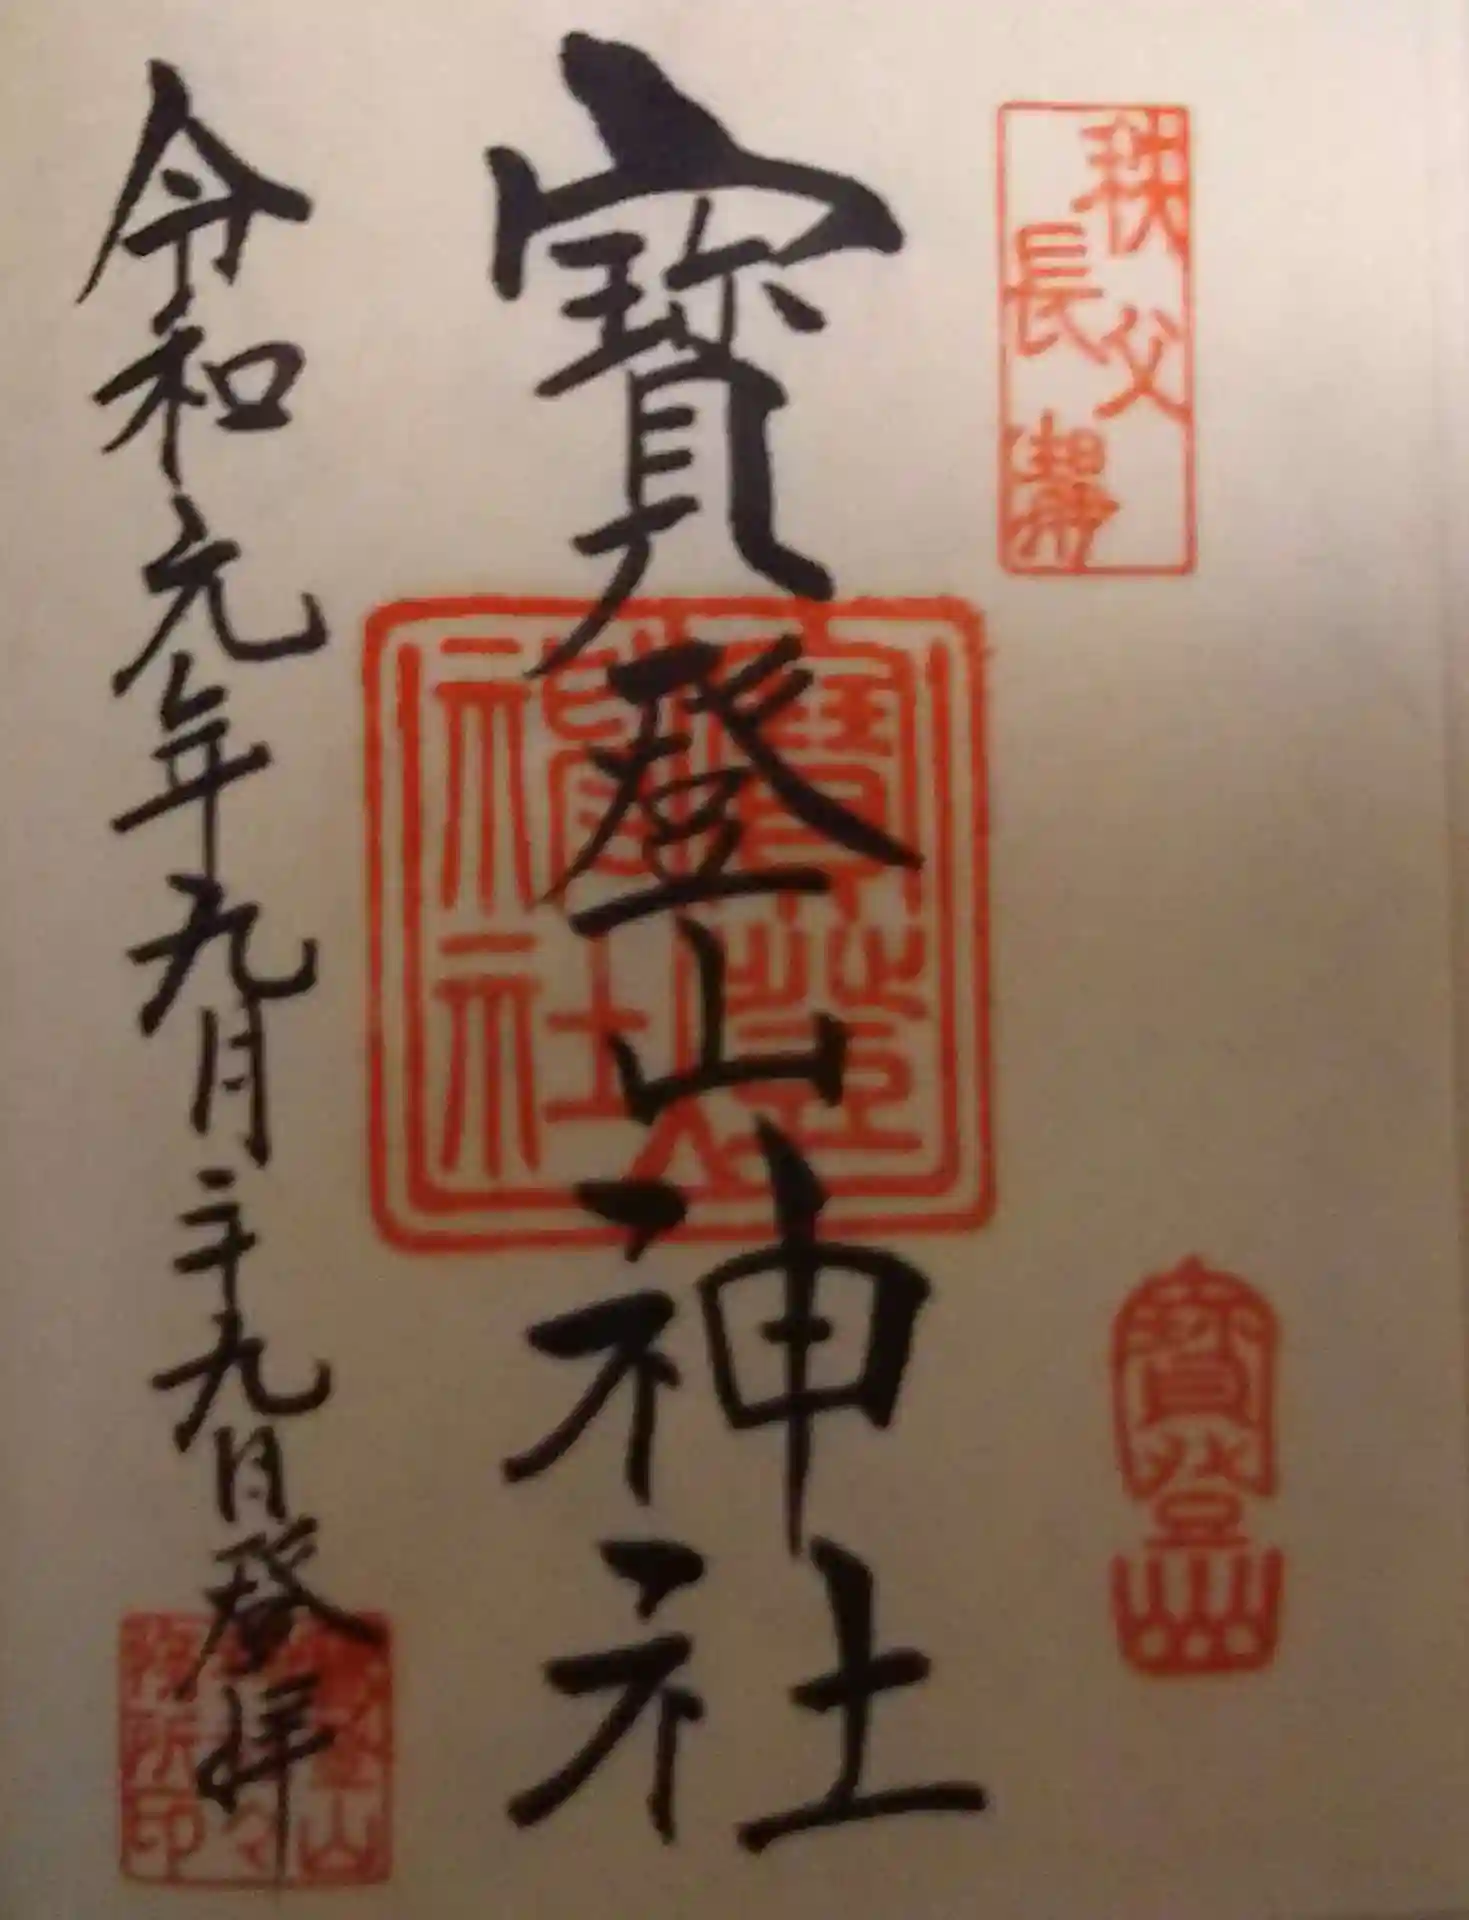 秩父
長瀞
寳登山
寳登山神社
寳登
神社
令和元年九月二十九日登拝